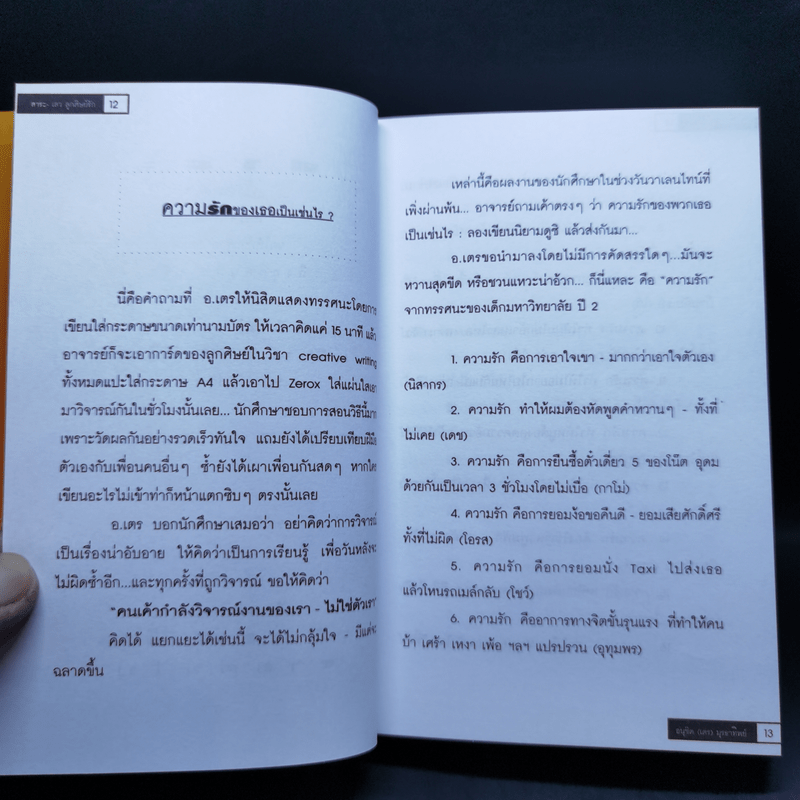 ดาระ- เตว ลูกศิษย์รัก 12
ความรักของเธอเป็นเช่นไร ?
นี่คือคำถามที่ อ.เตรให้นิสิตแสดงทรรศนะโดยการ
เขียนใส่กระดาษขนาดเท่านามบัตร ให้เวลาคิดแค่ 15 นาที แล้ว
อาจารย์ก็จะเอาการ์ดของลูกศิษย์ในวิชา creative writting
ทั้งหมดแปะใส่กระดาษ A4 แล้วเอาไป Zerox ใส่แผ่นใสเอา
มาวิจารณ์กันในชั่วโมงนั้นเลย... นักศึกษาชอบการสอนวิธีนี้มาก
เพราะวัดผลกันอย่างรวดเร็วทันใจ แถมยังได้เปรียบเทียบฝีมือ
ตัวเองกับเพื่อนคนอื่นๆ ซ้ำยังได้เผาเพื่อนกันสดๆ หากใคร
เขียนอะไรไม่เข้าท่าก็หน้าแตกซิบๆ ตรงนั้นเลย
อ.เตร บอกนักศึกษาเสมอว่า อย่าคิดว่าการวิจารณ์
เป็นเรื่องน่าอับอาย ให้คิดว่าเป็นการเรียนรู้ เพื่อวันหลังจะ
ไม่ผิดซ้ำอีก...และทุกครั้งที่ถูกวิจารณ์ ขอให้คิดว่า
"คนเค้ากำลังวิจารณ์งานของเรา - ไม่ใช่ตัวเรา"
คิดได้ แยกแยะได้เช่นนี้ จะได้ไม่กลุ้มใจ - มีแต่จะ
ฉลาดขึ้น
เหล่านี้คือผลงานของนักศึกษาในช่วงวันวาเลนไทน์ที่
เพิ่งผ่านพ้น... อาจารย์ถามเค้าตรงๆ ว่า ความรักของพวกเธอ
เป็นเช่นไร : ลองเขียนนิยามดูซิ แล้วส่งกันมา...
อ.เตรขอนำมาลงโดยไม่มีการคัดสรรใดๆ...มันจะ
หวานสุดขีด หรือชวนแหวะน่าอ้วก... ก็นี่แหละ คือ "ความรัก"
จากทรรศนะของเด็กมหาวิทยาลัย ปี 2
1. ความรัก คือการเอาใจเขา - มากกว่าเอาใจตัวเอง
(นิสากร)
2. ความรัก ทำให้ผมต้องหัดพูดคำหวานๆ - ทั้งที่
ไม่เคย (เดช)
3. ความรัก คือการยืนซื้อตั๋วเดี่ยว 5 ของโน๊ต อุดม
ด้วยกันเป็นเวลา 3 ชั่วโมงโดยไม่เบื่อ (กาโม่)
4. ความรัก คือการยอมง้อขอคืนดี - ยอมเสียศักดิ์ศรี
ทั้งที่ไม่ผิด (โอรส)
5. ความรัก คือการยอมนั่ง Taxi ไปส่งเธอ
แล้วโหนรถเมล์กลับ (โชว์)
6. ความรัก คืออาการทางจิตขั้นรุนแรง ที่ทำให้คน
บ้า เศร้า เหงา เพ้อ ฯลฯ แปรปรวน (อุทุมพร)
13